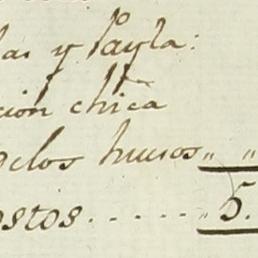 las y Payla:
cion chica
delos huesos " "
ostos...... " 5.